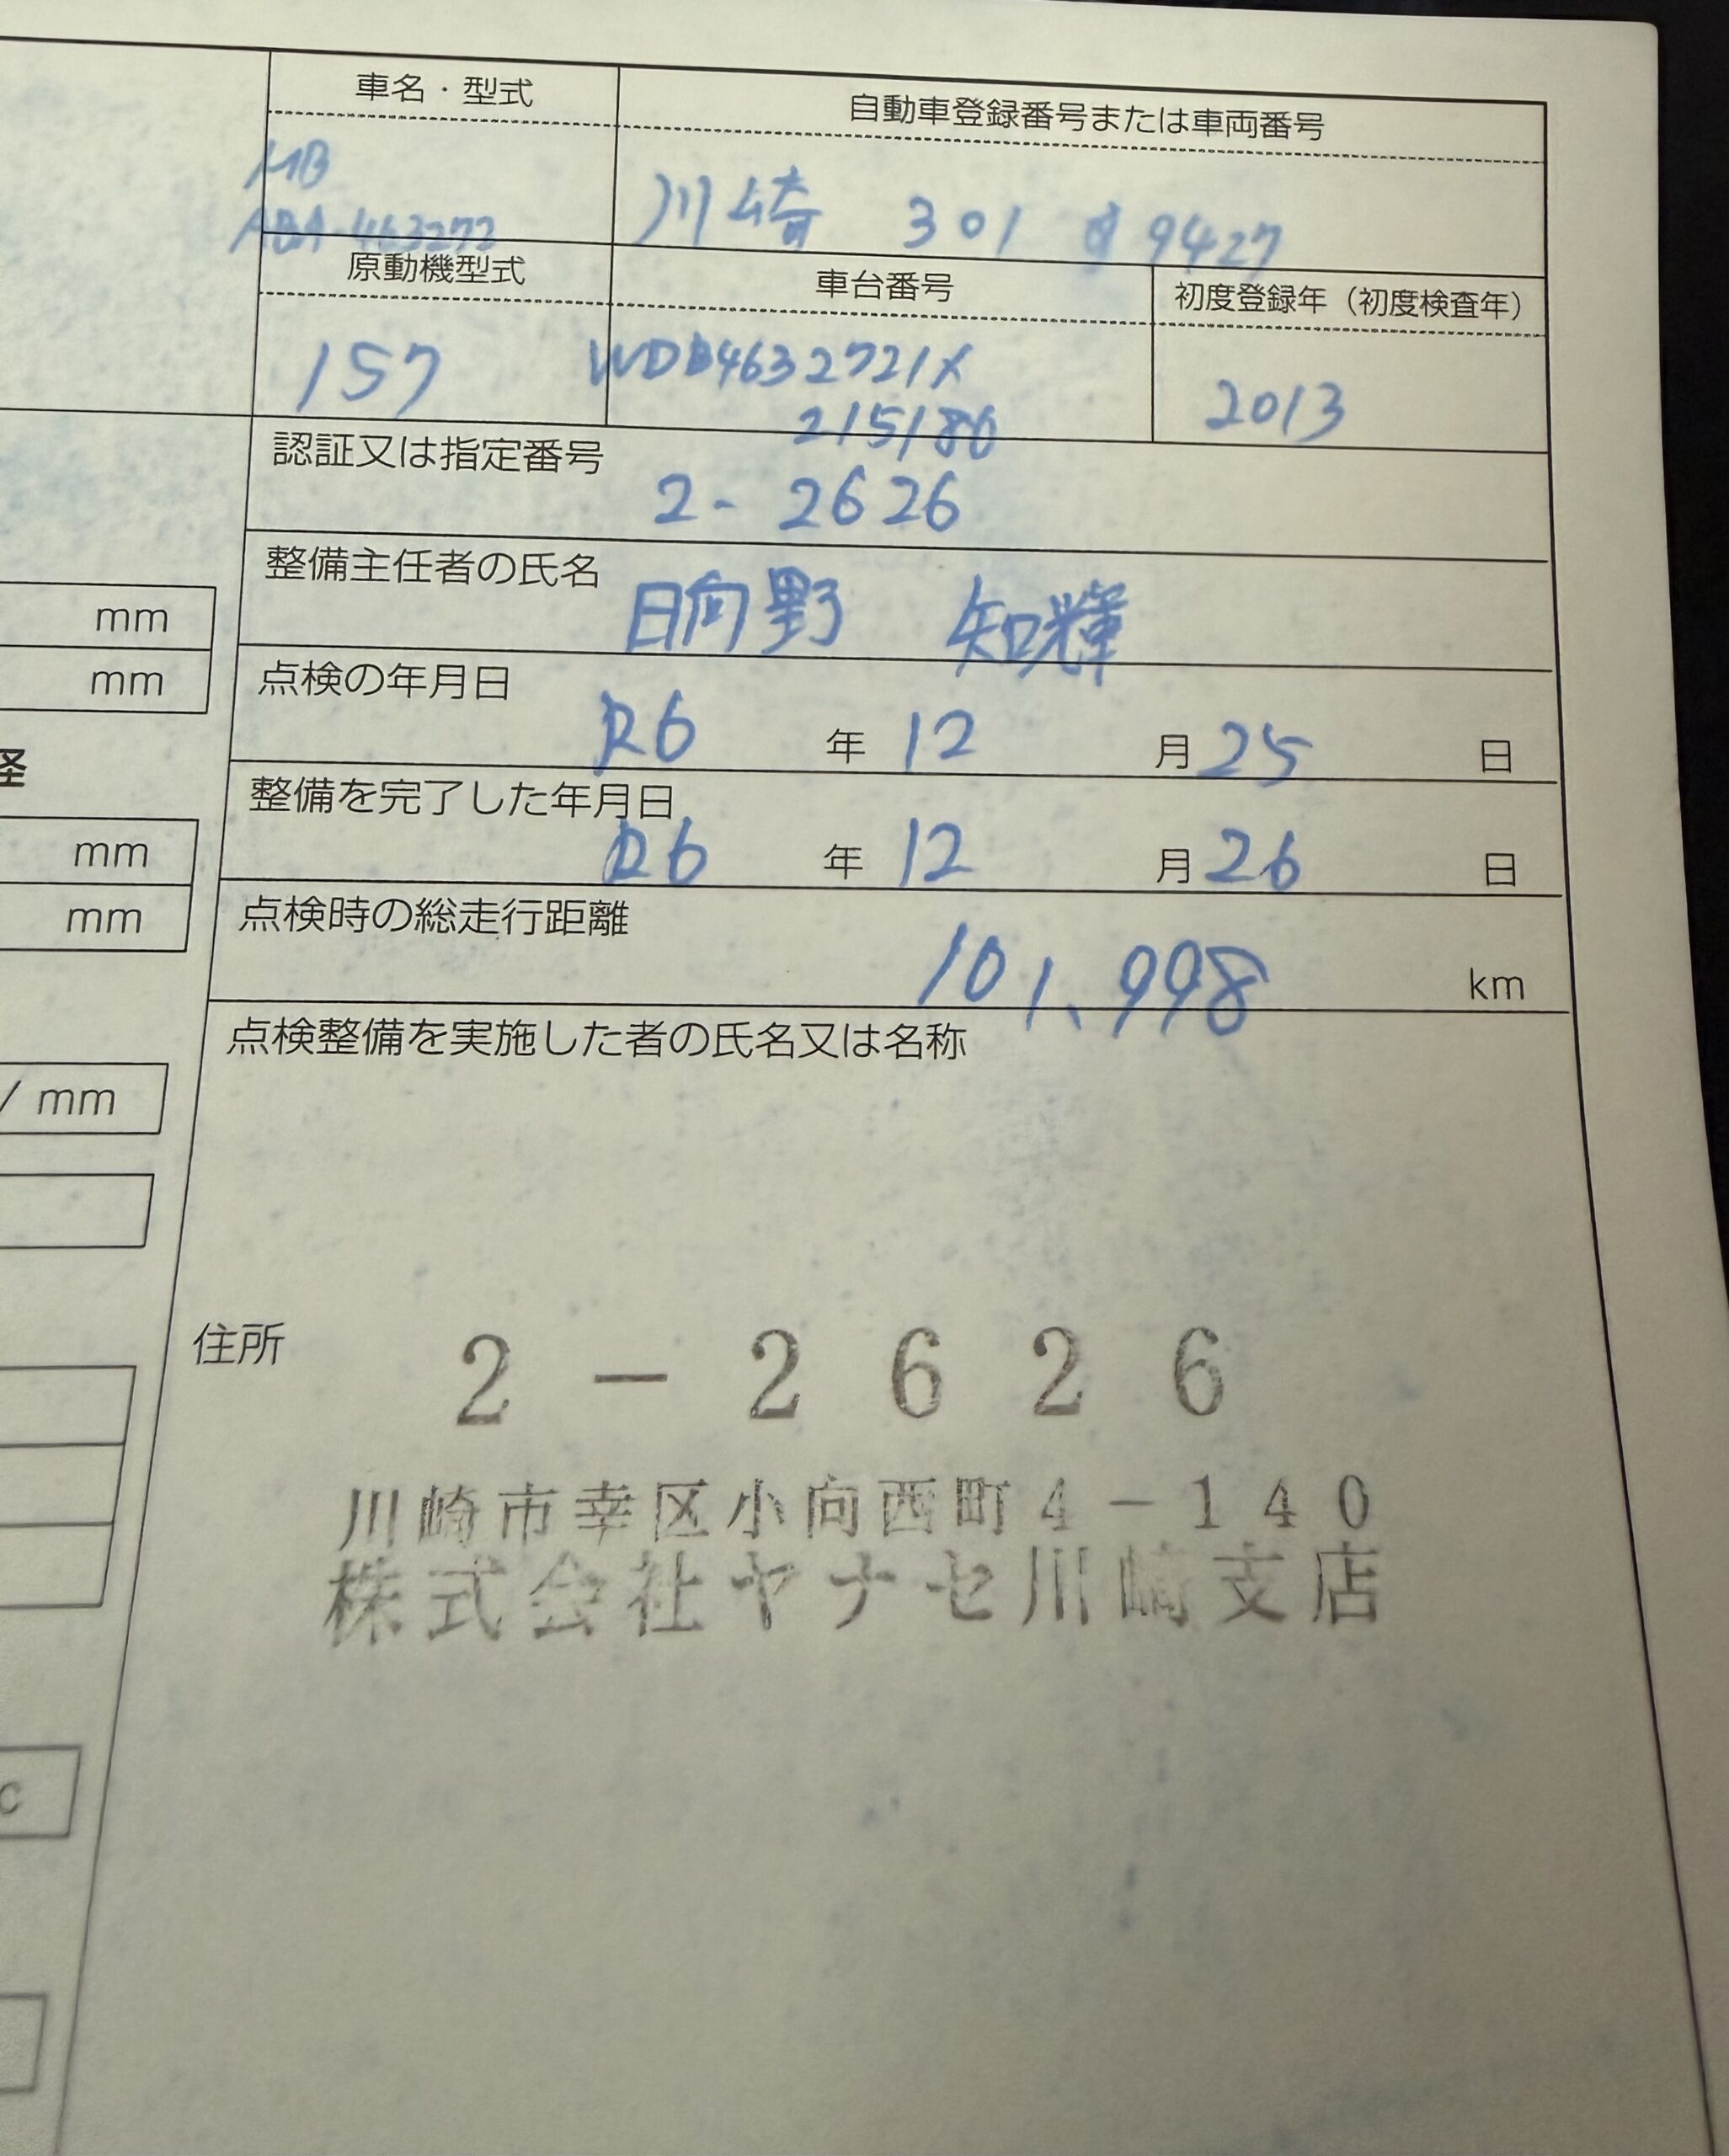 車名・型式
自動車登録番号または車両番号
MB
ABA-463272
川崎 301 9427
原動機型式
車台番号
初度登録年（初度検査年）
157
WDB4632721X
215180
2013
認証又は指定番号
2-2626
整備主任者の氏名
日向野 知輝
mm
点検の年月日
mm
R6 年 12 月 25 日
整備を完了した年月日
R6 年 12 月 26 日
mm
点検時の総走行距離
mm
101,998 km
点検整備を実施した者の氏名又は名称
/ mm
住所
2-2626
川崎市幸区小向西町4-140
株式会社ヤナセ川崎支店